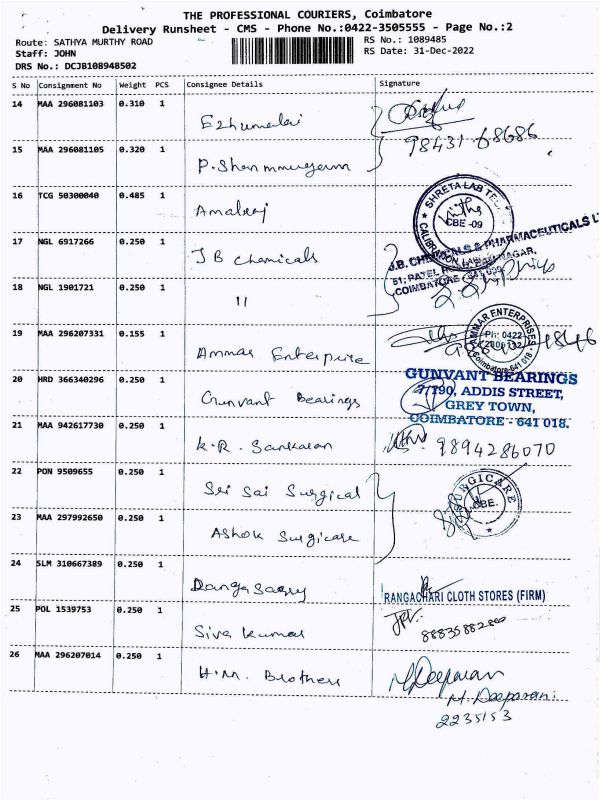 THE PROFESSIONAL COURIERS, Coimbatore
Delivery Runsheet - CMS - Phone No.:0422-3505555 - Page No.:2
Route: SATHYA MURTHY ROAD
RS No.: 1089485
Staff: JOHN
RS Date: 31-Dec-2022
DRS No.: DCJB108948502
S No Consignment No Weight PCS Consignee Details Signature
14 MAA 296081103 0.310 1 Ezhumalai
98431 68686
15 MAA 296081105 0.320 1 P. Shanmmugam
16 TCG 50300040 0.485 1 Amalraj
SHRETA LAB TECH
CBE -09
CALIBRATION
17 NGL 6917266 0.250 1 JB chemicals
J.B. CHEMICALS & PHARMACEUTICALS L
51, PATEL NAGAR,
COIMBATORE
18 NGL 1901721 0.250 1 11
19 MAA 296207331 0.155 1 Ammar Enterprise
AMMAR ENTERPRISES
Ph: 0422
Coimbatore-641 018.
20 HRD 366340296 0.250 1 Gunvant Bearings
GUNVANT BEARINGS
7/190, ADDIS STREET,
GREY TOWN,
COIMBATORE - 641 018.
21 MAA 942617730 0.250 1 K.R. Sankaran
9894286070
22 PON 9509655 0.250 1 Sri Sai Surgical
SURGICARE
CBE.
23 MAA 297992650 0.250 1 Ashok Surgicare
24 SLM 310667389 0.250 1 Ranga Saamy
RANGACHARI CLOTH STORES (FIRM)
25 POL 1539753 0.250 1 Siva Kumar
26 MAA 296207014 0.250 1 H.M. Brothers
M. Deeparani
2235153